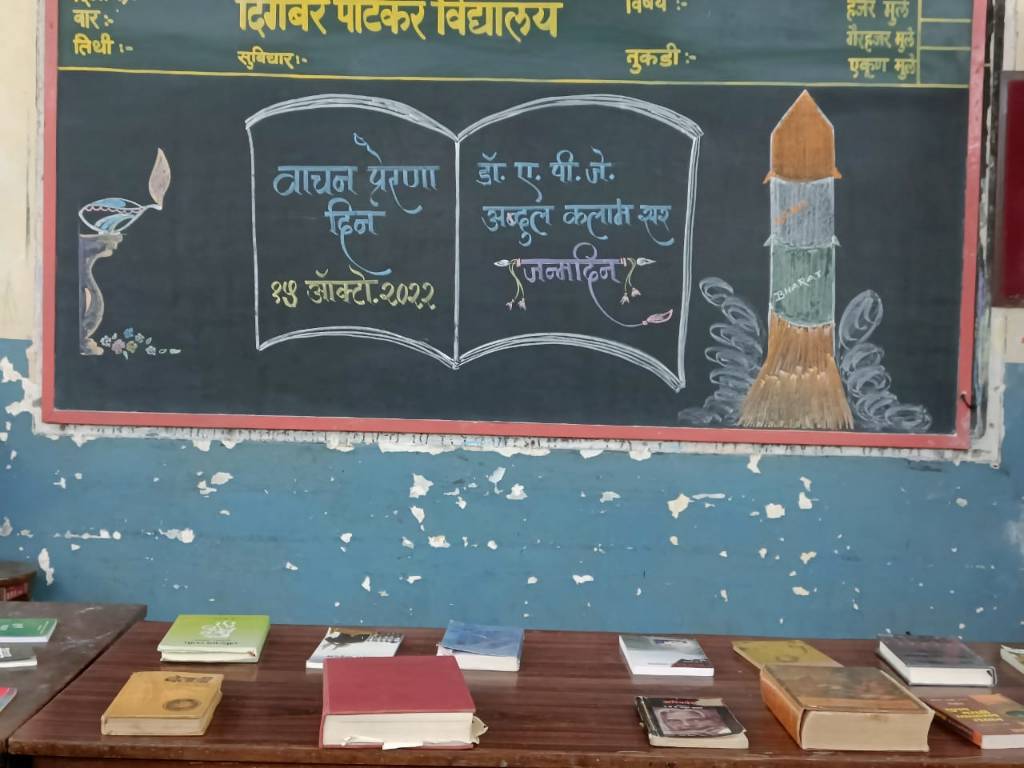 वार :-
तिथी :-
दिगंबर पाटकर विद्यालय
सुविचार :-
विषय :-
तुकडी :-
हजर मुले
गैरहजर मुले
एकूण मुले
वाचन प्रेरणा
दिन
१५ ऑक्टो. २०२२
डॉ. ए. पी. जे.
अब्दुल कलाम सर
जन्मदिन
BHARAT